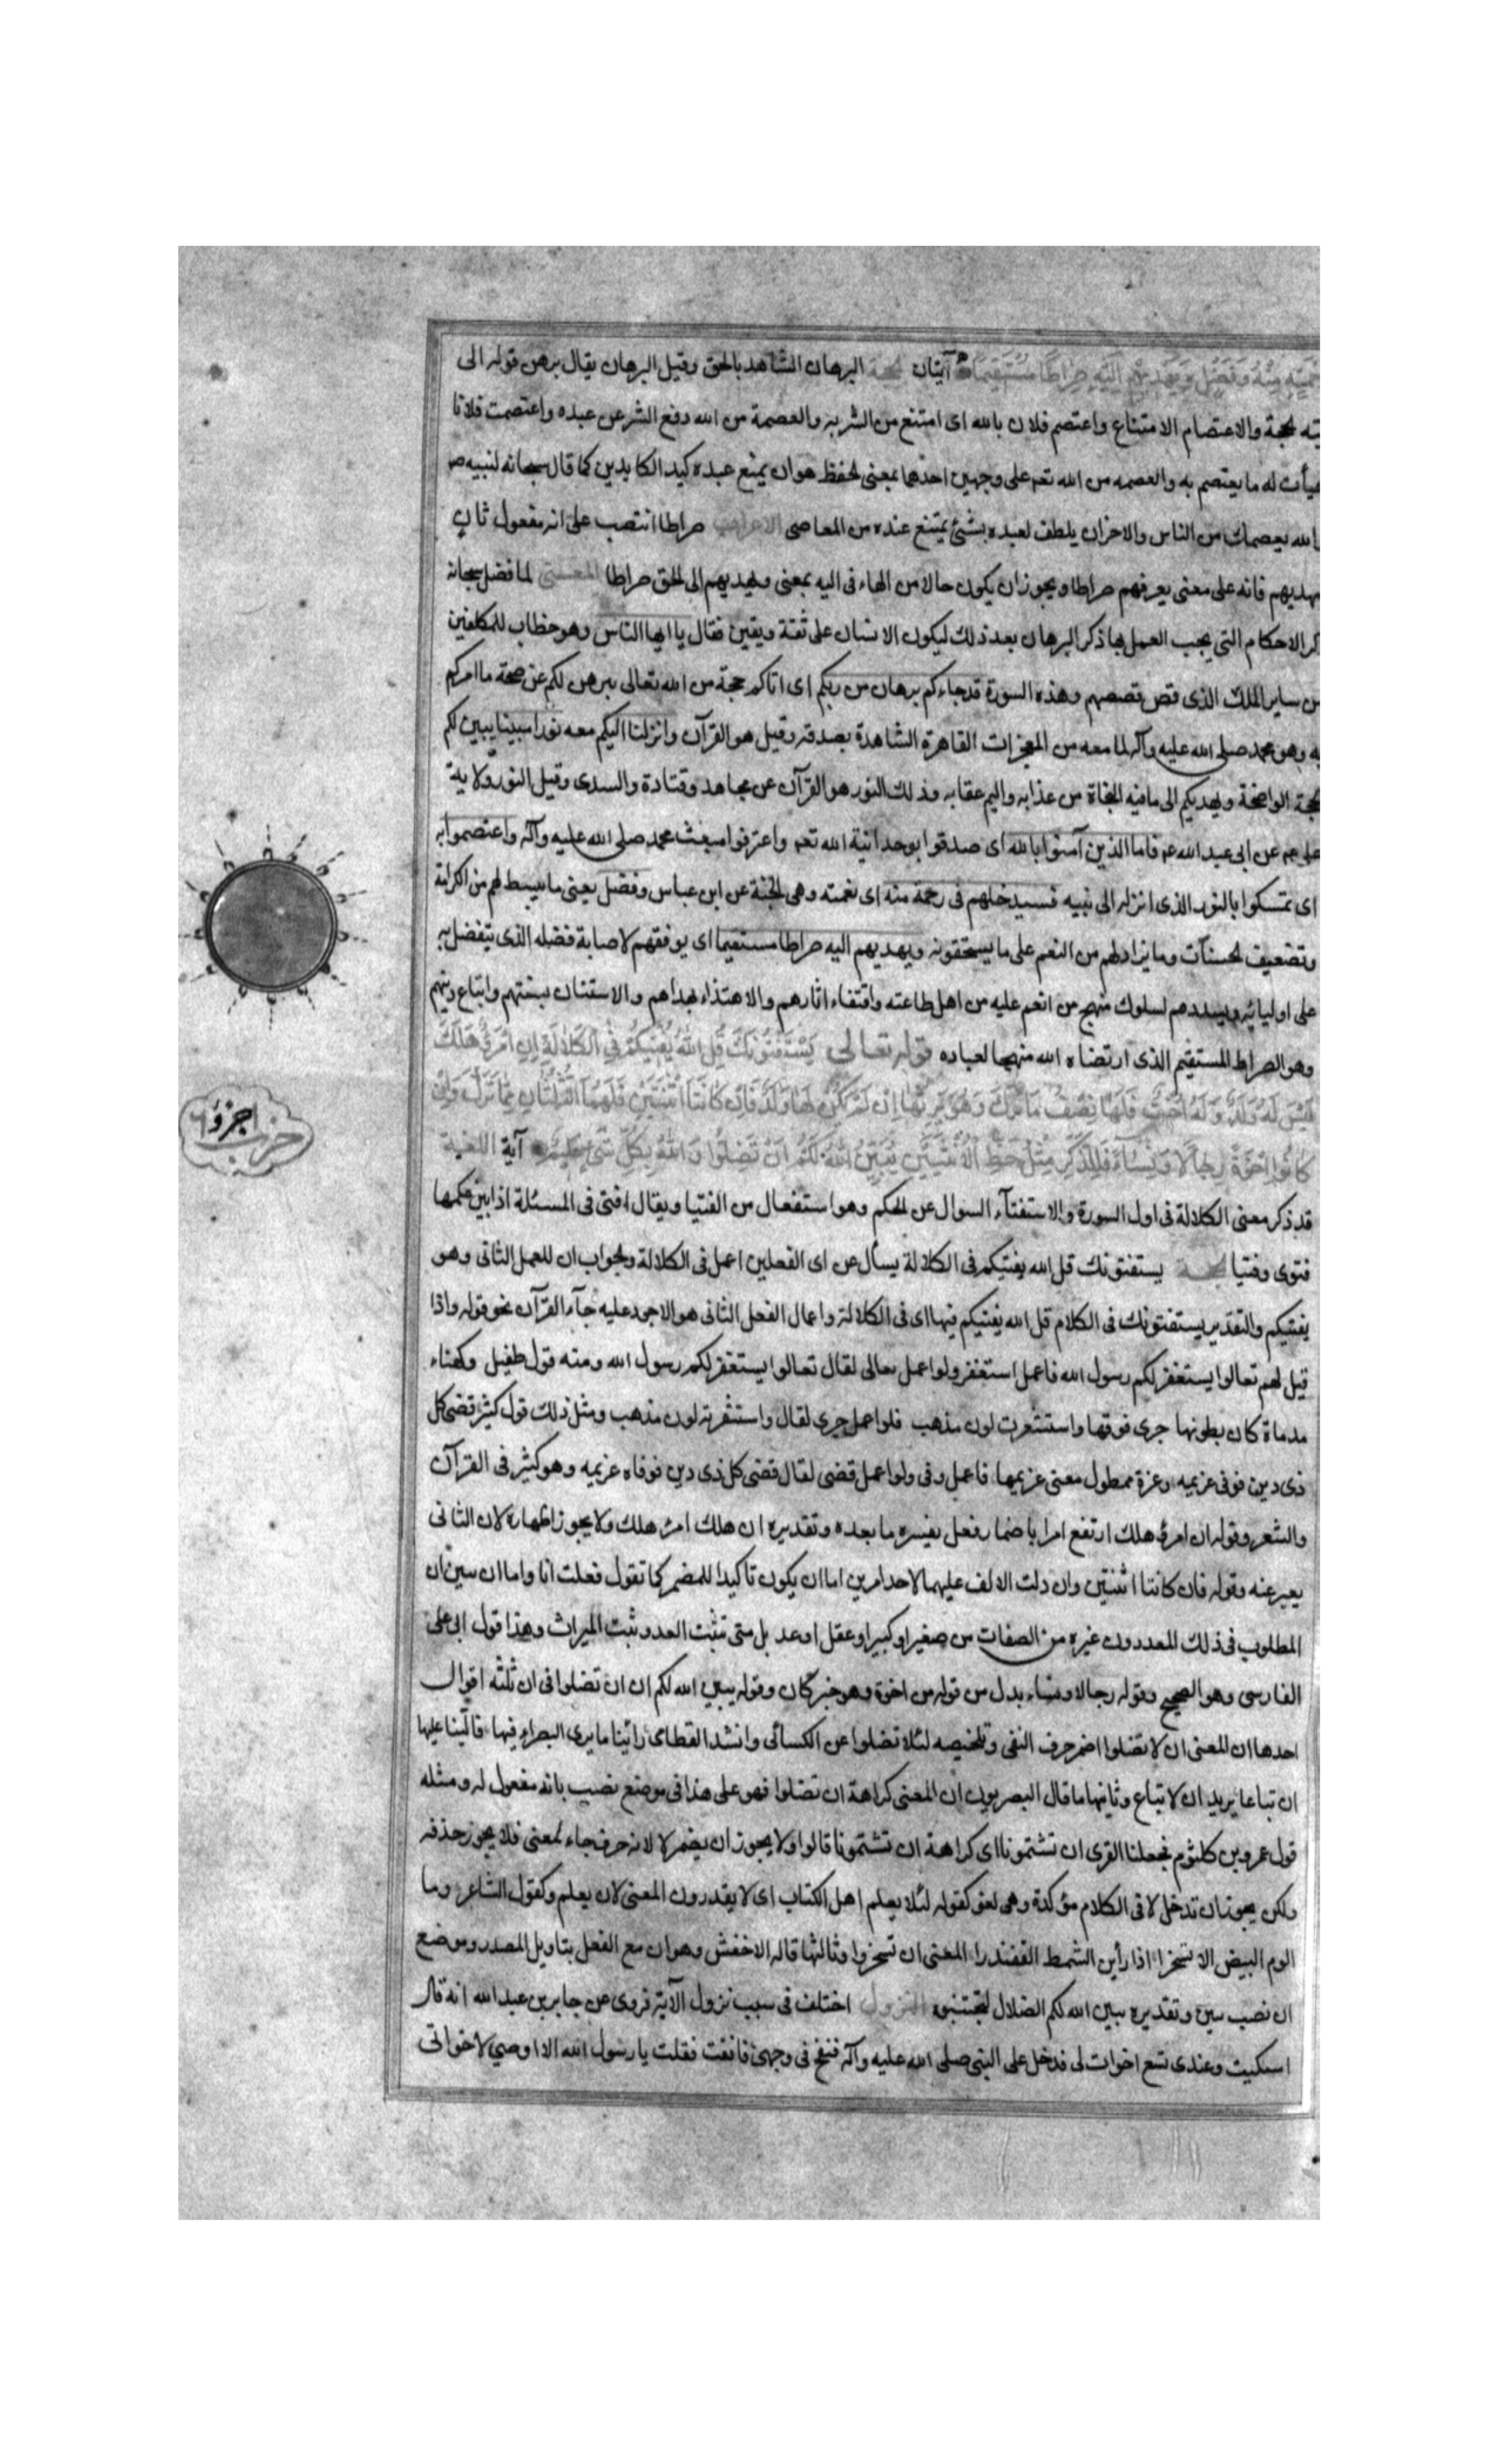 رحمة منه وفضل ويهديهم اليه صراطا مستقيما آيتان اللغة البرهان الشاهد بالحق وقيل البرهان يقال برهن قوله الى
بحجة والاعتصام الامتناع واعتصم فلان بالله اى امتنع من الشر به والعصمة من الله دفع الشر عن عبده واعتصمت فلانا
هيأت له ما يعتصم به والعصمه من الله تعم على وجهين احدهما بمعنى الحفظ هوان يمنع عبده كيد الكايدين كما قال سبحانه لنبيه ص
الله يعصمك من الناس والاخران يلطف لعبده بشئ يمتنع عنده من المعاصى الاعراب صراطا انتصب على انه مفعول ثان
يهديهم فانه على معنى يعرفهم صراطا ويجوز ان يكون حالا من الهاء فى اليه بمعنى ويهديهم الى الحق صراطا المعنى لما فضل سبحانه
ذكر الاحكام التى يجب العمل بها ذكر البرهان بعد ذلك ليكون الانسان على ثقة ويقين فقال يا ايها الناس وهو خطاب للمكلفين
من ساير الملك الذى قص قصصهم وهذه السورة قد جاءكم برهان من ربكم اى اتاكم حجة من الله تعالى يبرهن لكم عن صحة ما امركم
به وهو محمد صلى الله عليه وآله لما معه من المعجزات القاهرة الشاهدة بصدقه وقيل هو القرآن وانزلنا اليكم معه نورا مبينا يبين لكم
الحجة الواضحة ويهديكم الى ما فيه النجاة من عذابه واليم عقابه وذلك النور هو القرآن عن مجاهد وقتادة والسدى وقيل النور ولاية
على عم عن ابى عبد الله عم فاما الذين آمنوا بالله اى صدقوا بوحدانية الله تعم واعترفوا مبعث محمد صلى الله عليه وآله واعتصموا به
اى تمسكوا بالنور الذى انزله الى نبيه فسيدخلهم فى رحمة منه اى نعمته وهى الجنة عن ابن عباس وفضل يعنى ما يبسط لهم من الكرامة
وتضعيف الحسنآت وما يزاد لهم من النعم على ما يستحقونه ويهديهم اليه صراطا مستقيما اى يوفقهم لاصابة فضله الذى يتفضل به
على اوليائه ويسددهم لسلوك منهج من انعم عليه من اهل طاعته واقتفاء اثارهم والاهتداء بهداهم والاستنان بسنتهم واتباع دينهم
وهو الصراط المستقيم الذى ارتضاه الله منهجا لعباده قوله تعالى يَسْتَفْتُونَكَ قُلِ اللهُ يُفْتِيكُمْ فِي الْكَلالَةِ إِنِ امْرُؤٌ هَلَكَ
لَيْسَ لَهُ وَلَدٌ وَلَهُ أُخْتٌ فَلَهَا نِصْفُ مَا تَرَكَ وَهُوَ يَرِثُهَا إِنْ لَمْ يَكُنْ لَهَا وَلَدٌ فَإِنْ كَانَتَا اثْنَتَيْنِ فَلَهُمَا الثُّلُثَانِ مِمَّا تَرَكَ وَإِنْ
كَانُوا إِخْوَةً رِجَالًا وَنِسَاءً فَلِلذَّكَرِ مِثْلُ حَظِّ الْأُنْثَيَيْنِ يُبَيِّنُ اللهُ لَكُمْ أَنْ تَضِلُّوا وَاللهُ بِكُلِّ شَيْءٍ عَلِيمٌ آية اللغة
قد ذكر معنى الكلالة فى اول السورة والاستفتآء السوال عن الحكم وهو استفعال من الفتيا ويقال افتى فى المسئلة اذا بين حكمها
فتوى وفتيا يستفتونك قل الله يفتيكم فى الكلالة يسأل عن اى الفعلين اعمل فى الكلالة والجواب ان للعمل الثانى وهو
يفتيكم والتقدير يستفتونك فى الكلام قل الله يفتيكم فيها اى فى الكلالة واعمال الفعل الثانى هو الاجود عليه جآء القرآن نحو قوله واذا
قيل لهم تعالوا يستغفر لكم رسول الله فاعمل استغفر ولو اعمل تعالى لقال تعالوا يستغفر لكم رسول الله ومنه قول طفيل وكمتاء
مدماة كان بطونها جرى فوقها واستشعرت لون مذهب فلو اعمل جرى لقال واستشعرته لون مذهب ومثل ذلك قول كثير قضى كل
ذى دين فوفى غريمه وعزة ممطول معنى غريمها فاعمل وفى ولو اعمل قضى لقال قضى كل ذى دين فوفاه غريمه وهو كثير فى القرآن
والشعر وقوله ان امرؤ هلك ارتفع امرا باضمار فعل يفسره ما بعده وتقديره ان هلك امرؤ هلك ولا يجوز اظهاره لان الثانى
يعبر عنه وقوله فان كانتا اثنتين وان دلت الالف عليهما لاحد امرين اما ان يكون تاكيدا للمضمر كما تقول فعلت انا واما ان
المطلوب فى ذلك العدد دون غيره من الصفات من صغير او كبير او عقل او عد بل متى تثبت العدد ثبت الميراث وهذا قول ابى على
الفارسى وهو الصحيح وقوله رجالا ونساء بدل من قوله من اخوة وهو خبر كان وقوله يبين الله لكم ان تضلوا فى ان ثلثه اقوال
احدها ان المعنى ان لا تضلوا اضمر حرف النفى وتلخيصه لئلا تضلوا عن الكسائى وانشد القطامى رأينا ما يرى البصراء فيها فآلينا عليها
ان تباعا يريد ان لا تباع وثانيها ما قال البصريون ان المعنى كراهة ان تضلوا فهو على هذا فى موضع نصب بانه مفعول له ومثله
قول عمرو بن كلثوم فعجلنا القرى ان تشتمونا اى كراهة ان تشتمونا قالوا ولا يجوز ان يضمر لا لانه حرف جاء لمعنى فلا يجوز حذفه
ولكن يجوز ان تدخل لا فى الكلام مؤكدة وهى لغو كقوله لئلا يعلم اهل الكتاب اى لا يقدرون المعنى لان يعلم وكقول الشاعر وما
الوم البيض الا تسخرا اذا رأين الشمط القفندرا المعنى ان تسخروا وثالثها قاله الاخفش وهو ان مع الفعل بتاويل المصدر وموضع
ان نصب يبين وتقديره يبين الله لكم الضلال لتجتنبوه النزول اختلف فى سبب نزول الآية فروى عن جابر بن عبد الله انه قال
اشتكيت وعندى تسع اخوات لى فدخل على النبى صلى الله عليه وآله فنفخ فى وجهى فافقت فقلت يا رسول الله الا اوصى لاخواتى
حزب
اجزو ٦